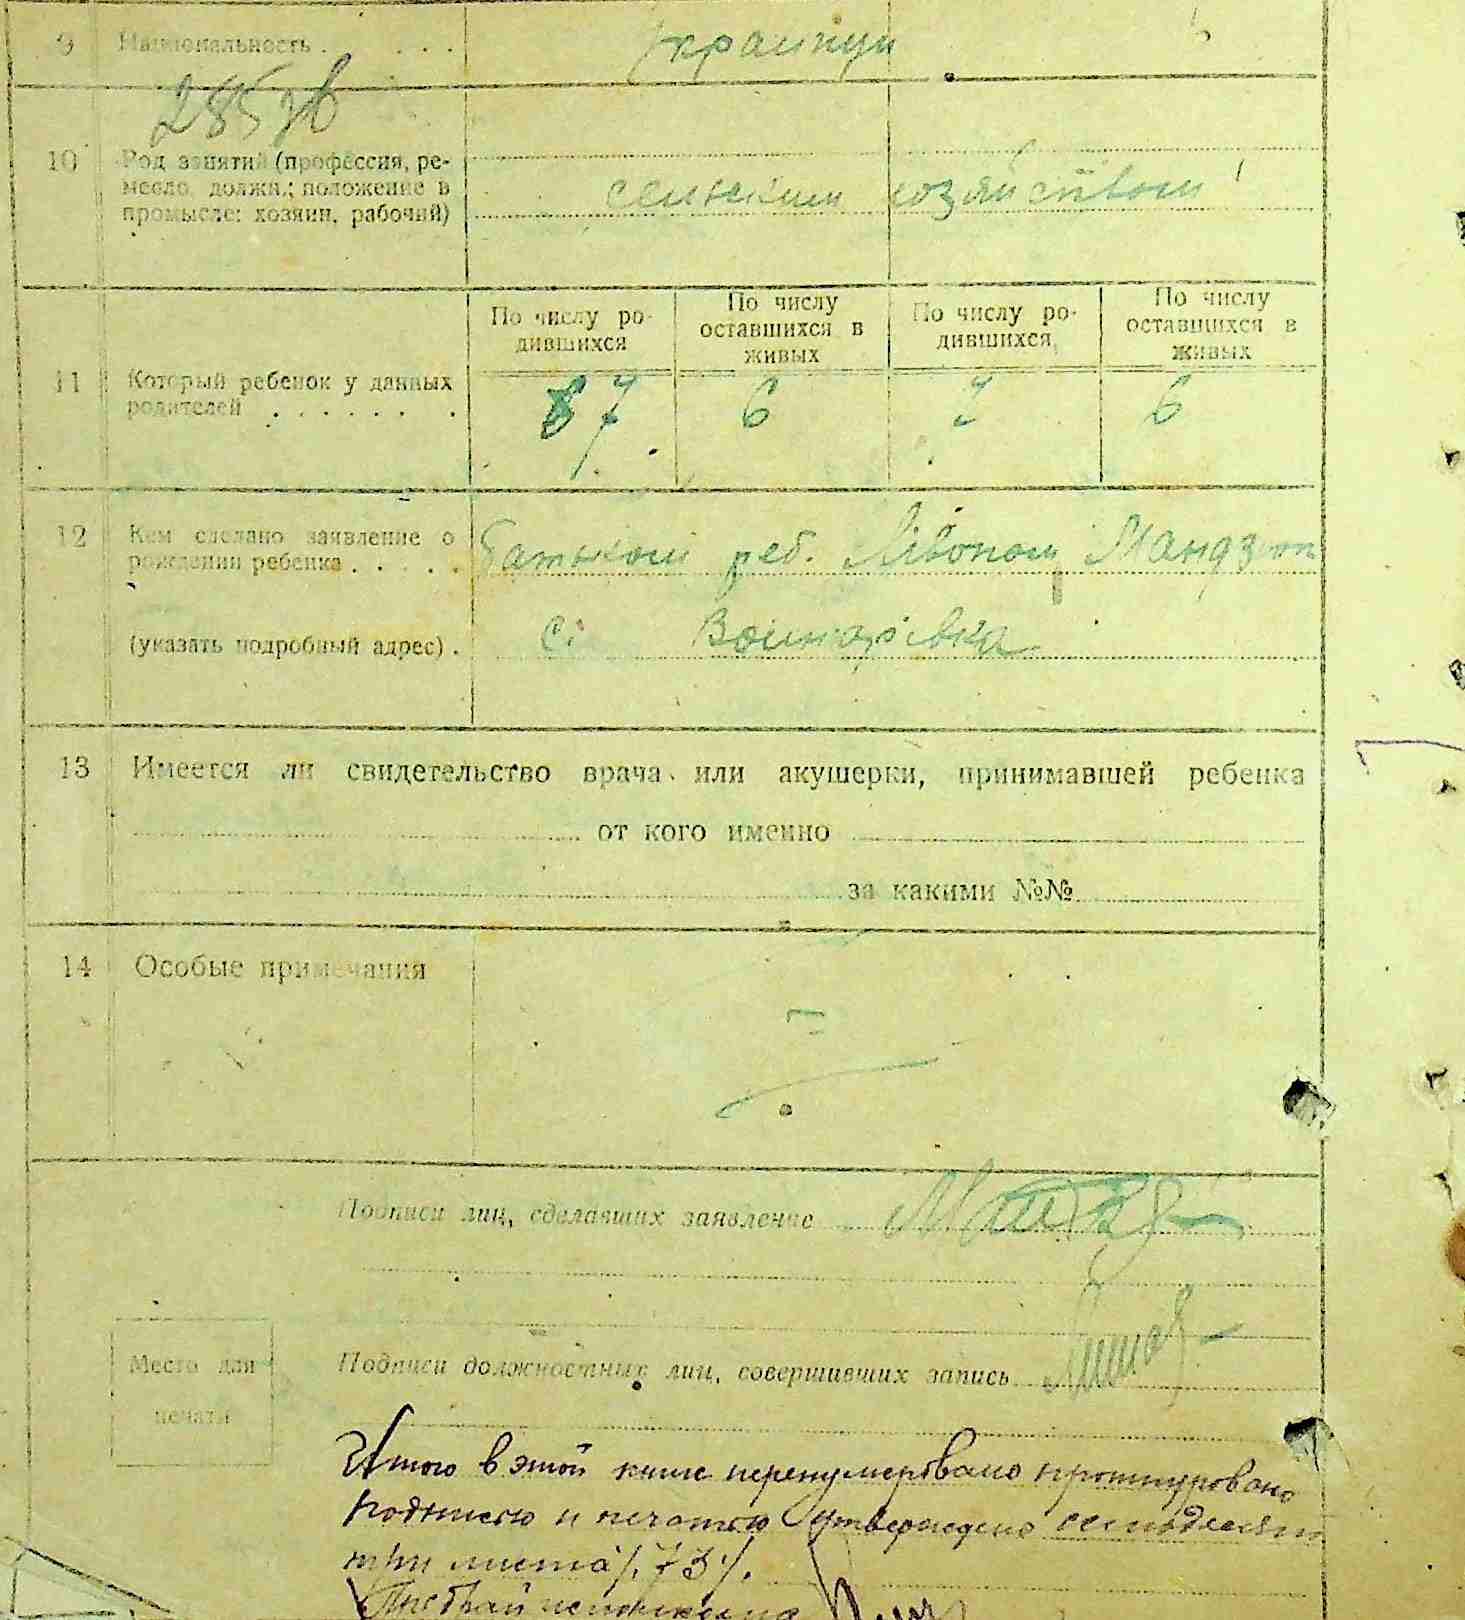 9 Национальность . . . . Украинци
285 зв
10 Род занятий (профессия, ре-
месло, должн.; положение в
промысле: хозяин, рабочий)
сельским хозяйством
По числу ро-
дившихся
По числу
оставшихся в
живых
По числу ро-
дившихся
По числу
оставшихся в
живых
11 Который ребенок у данных
родителей . . . . . . .
7 6 7 6
12 Кем сделано заявление о
рождении ребенка . . . . .
батьком реб.
(указать подробный адрес) .
с.
13 Имеется ли свидетельство врача или акушерки, принимавшей ребенка
от кого именно
за какими №№
14 Особые примечания
Подписи лиц, сделавших заявление
Место для
печати
Подписи должностных лиц, совершивших запись
Итого в этой книге перенумеровано прошнуровано
подписью и печатью утверждено семьдесят
три листа /.73/.